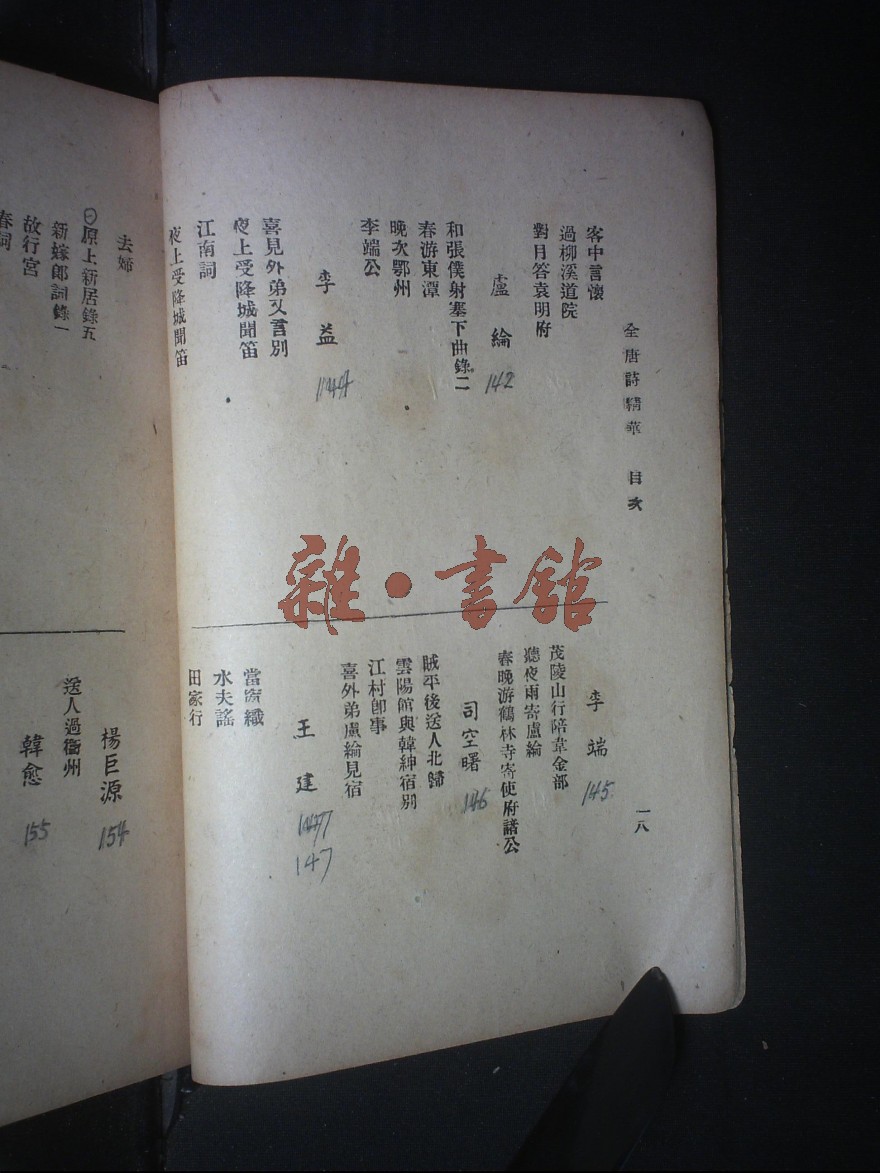 全唐詩精華 目次
一八
客中言懷
過柳溪道院
對月答袁明府
盧綸
142
和張僕射塞下曲錄二
春游東潭
晚次鄂州
李端公
李益
144
喜見外弟又言別
夜上受降城聞笛
江南詞
夜上受降城聞笛
李端
145
茂陵山行陪韋金部
聽夜雨寄盧綸
春晚游鶴林寺寄使府諸公
司空曙
146
賊平後送人北歸
雲陽館與韓紳宿別
江村卽事
喜外弟盧綸見宿
王建
147
當窗織
水夫謠
田家行
去婦
原上新居錄五
新嫁郎詞錄一
故行宮
春詞
楊巨源
154
送人過衞州
韓愈
155
雜·書館